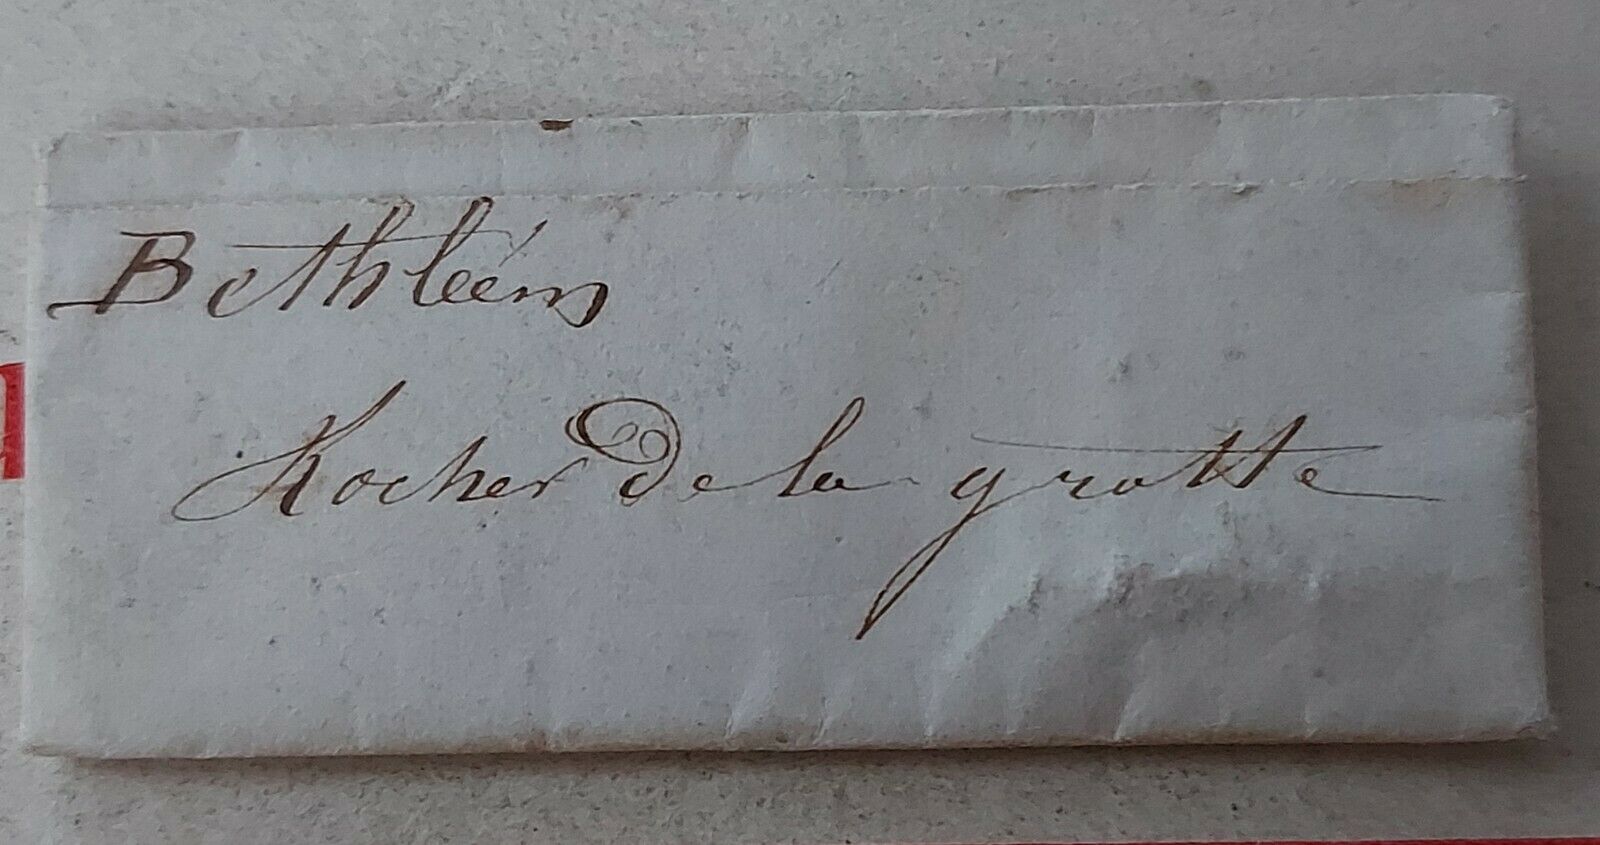 Bethléem
Rocher de la grotte